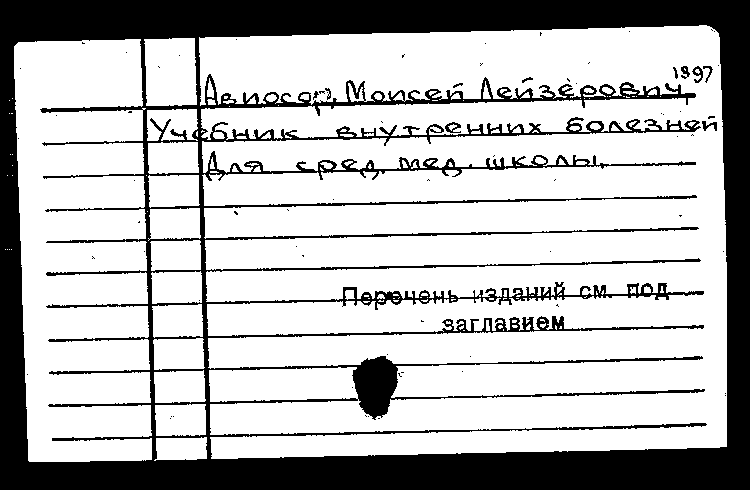 Авиосор, Моисей Лейзерович, 1897
Учебник внутренних болезней
Для сред. мед. школы.
Перечень изданий см. под
заглавием